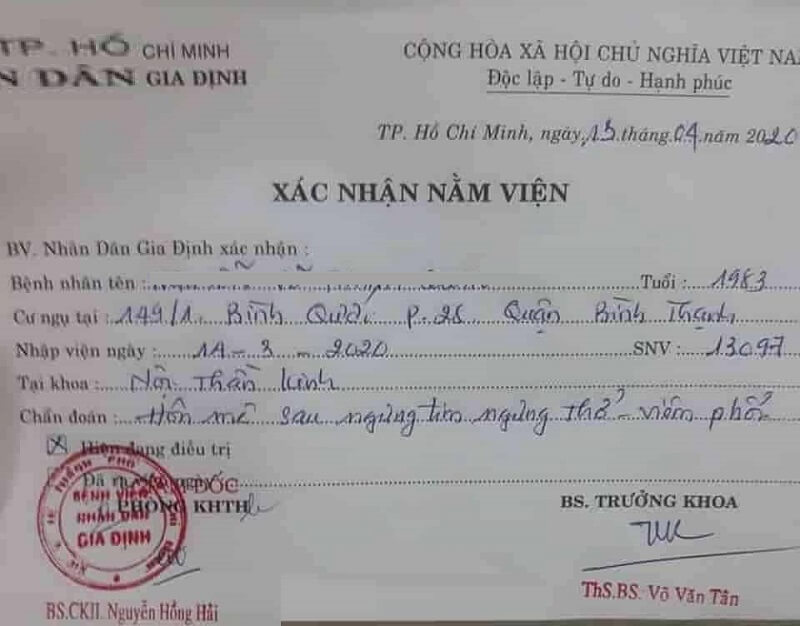 TP. HỒ CHÍ MINH
N DÂN GIA ĐỊNH
CỘNG HÒA XÃ HỘI CHỦ NGHĨA VIỆT NA
Độc lập - Tự do - Hạnh phúc
TP. Hồ Chí Minh, ngày 13 tháng 04 năm 2020
XÁC NHẬN NẰM VIỆN
BV. Nhân Dân Gia Định xác nhận :
Bệnh nhân tên : Tuổi : 1983
Cư ngụ tại : 149/1. Bình Quới P.25 Quận Bình Thạnh
Nhập viện ngày : 14 - 3 - 2020 SNV : 13097
Tại khoa : Nội Thần Kinh
Chẩn đoán : Hôn mê sau ngưng tim ngưng thở - viêm phổi
Hiện đang điều trị
Đã ngày
ĐỐC
PHÒNG KHTH
BS. TRƯỞNG KHOA
BỆNH VIỆN
NHÂN DÂN
GIA ĐỊNH
ThS.BS. Võ Văn Tân
BS.CKII. Nguyễn Hồng Hải